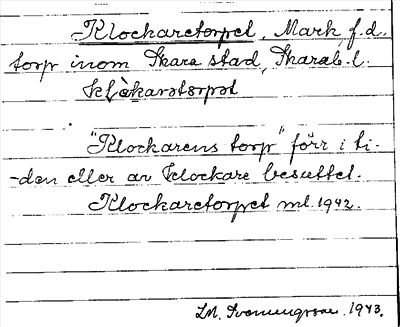 Klockaretorpet, Mark f.d.
torp inom Skara stad, Skarab. l.
"Klockarens torp" förr i ti-
-den eller av klockare besuttet.
Klockaretorpet ml. 1942.
1943.